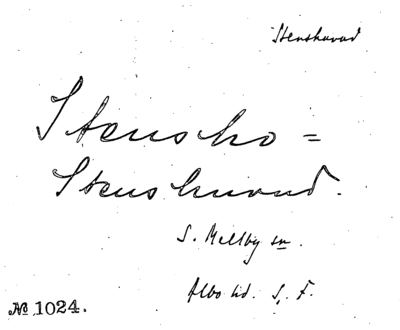 Stenshuvud
Stensho =
Stenshuvud.
S. Mellby sn.
Albo hd. S. F.
№ 1024.